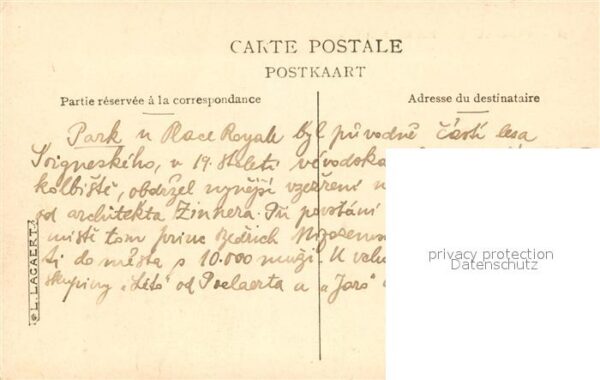 CARTE POSTALE
POSTKAART
Partie réservée à la correspondance
Adresse du destinataire
Park u Place Royale byl původně částí lesa
Soigneského, v 19. století vévodska
kolbiště, obdržel nynější vzezření n
od architekta Zinnera. Při povstání
místě tom princ Bedřich
ti do města s 10.000 muži. U
skupiny "Léto" od Poelaerta a "Jaro"
L. LAGAERT
privacy protection
Datenschutz